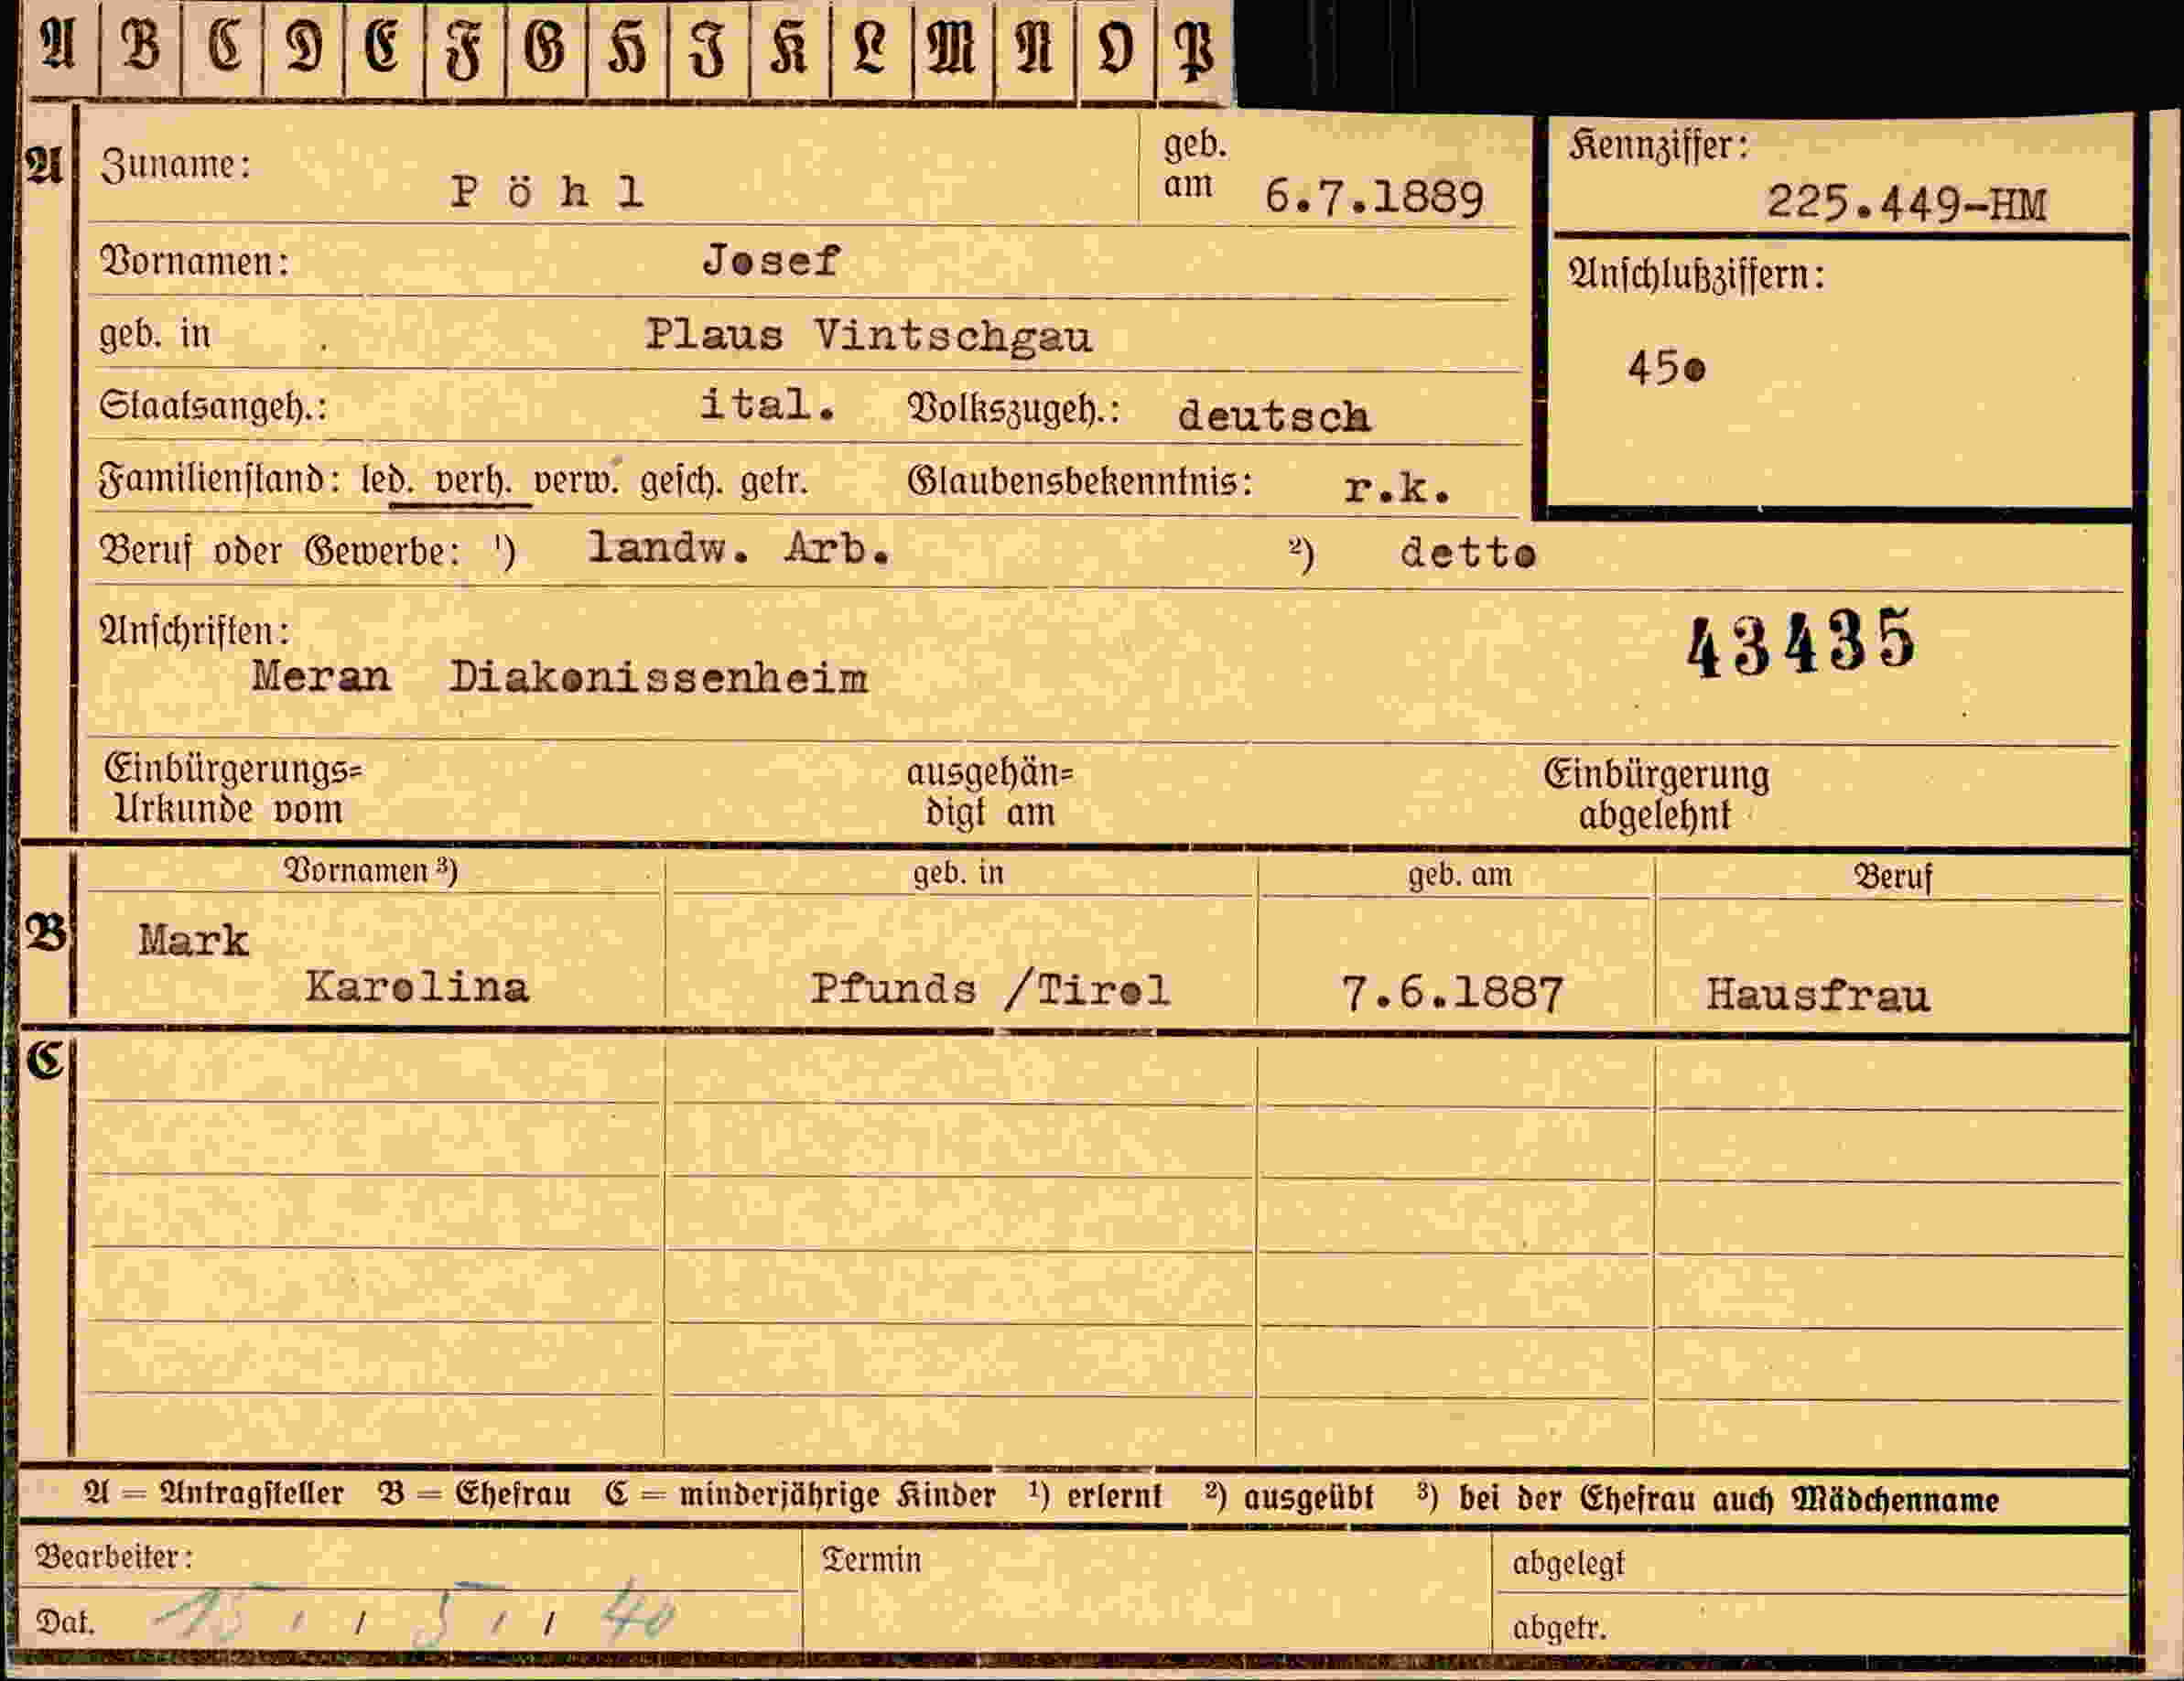 A B C D E F G H J K L M N O P
A Zuname: Pöhl geb. am 6.7.1889 Kennziffer: 225.449-HM
Vornamen: Josef Anschlußziffern:
geb. in Plaus Vintschgau 450
Staatsangeh.: ital. Volkszugeh.: deutsch
Familienstand: led. verh. verw. gesch. getr. Glaubensbekenntnis: r.k.
Beruf oder Gewerbe: ¹) landw. Arb. ²) detto
Anschriften: 43435
Meran Diakonissenheim
Einbürgerungs= ausgehän= Einbürgerung
Urkunde vom digt am abgelehnt
Vornamen ³) geb. in geb. am Beruf
B Mark
Karolina Pfunds /Tirol 7.6.1887 Hausfrau
C
A = Antragsteller B = Ehefrau C = minderjährige Kinder ¹) erlernt ²) ausgeübt ³) bei der Ehefrau auch Mädchenname
Bearbeiter: Termin abgelegt
Dat. 15 / 5 / 40 abgetr.